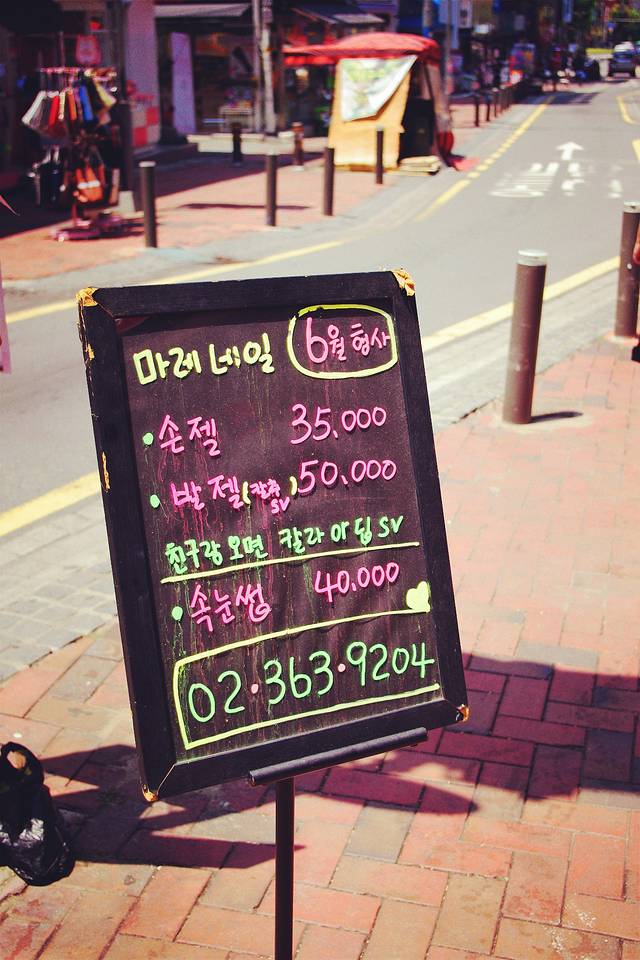 마레 네일 6월 행사
· 손젤 35.000
· 발젤(칼츄 sv) 50.000
친구랑 오면 칼라 or 딥 SV
· 속눈썹 40.000
02·363·9204